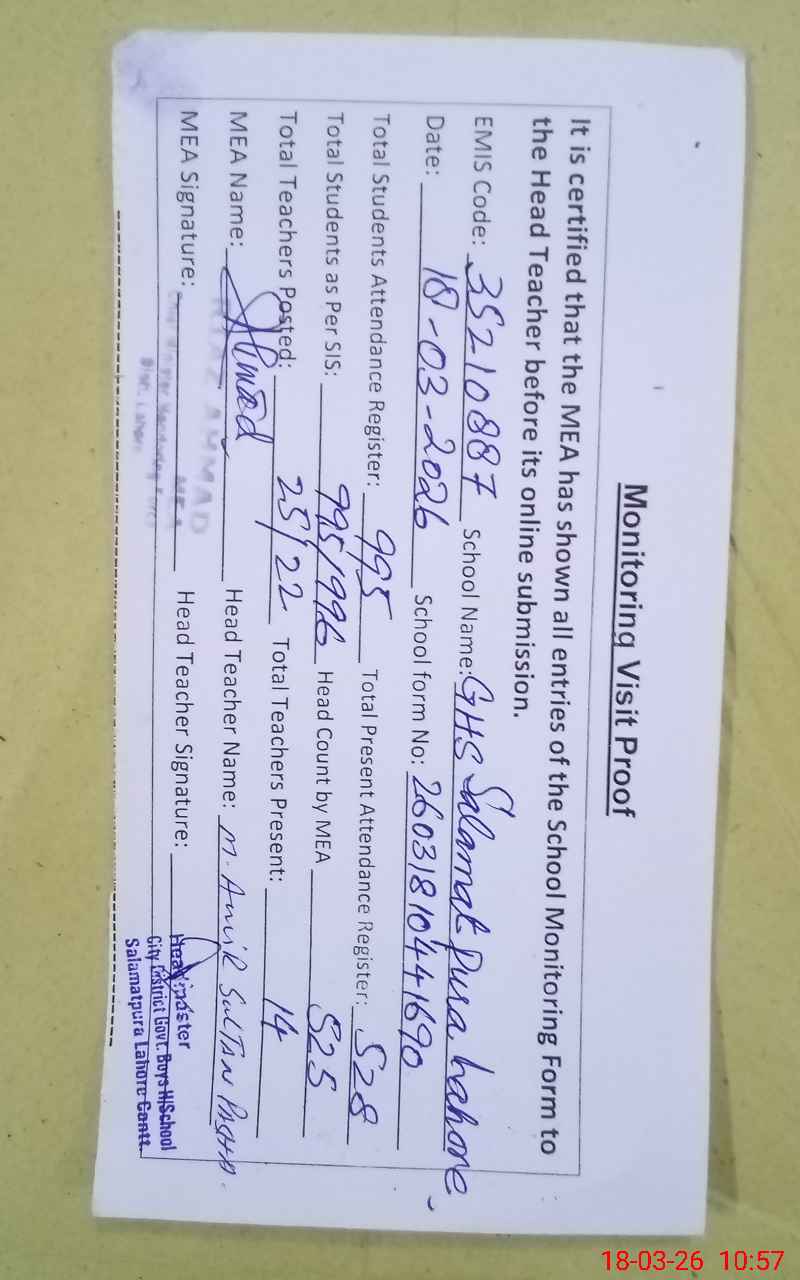 Monitoring Visit Proof
It is certified that the MEA has shown all entries of the School Monitoring Form to
the Head Teacher before its online submission.
EMIS Code: 35210887 School Name: GHS Salamat Pura Lahore
Date: 18-03-2026 School form No: 260318104441690
Total Students Attendance Register: 995 Total Present Attendance Register: 528
Total Students as Per SIS: 995/996 Head Count by MEA 525
Total Teachers Posted: 25/22 Total Teachers Present: 14
MEA Name: Ahmad Head Teacher Name: M. Amir Sultan
AHMAD
MEA Signature: Head Teacher Signature:
MEA
Headmaster
City District Govt. Boys H/School
Salamatpura Lahore Cantt.
18-03-26 10:57